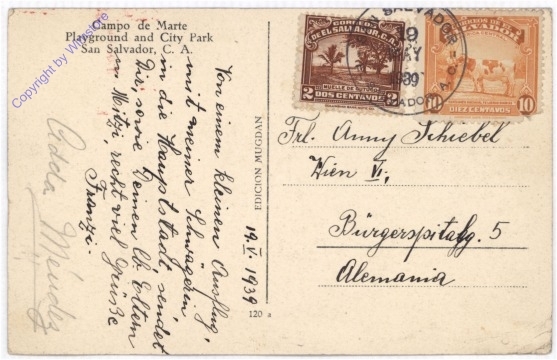 Campo de Marte
Playground and City Park
San Salvador, C. A.
Copyright by Winstore
Von einem kleinen Ausflug,
mit meiner Schwägerin
in die Hauptstadt sendet
Dir, sowie Deinen lb. Eltern
u. Mitzi, recht viel Grüße
Franzi.
19.V.1939
Adda Méndez
EDICION MUGDAN
120 a
CORREOS
DE EL SALVADOR, C.A.
MUELLE DE
2 2
DOS CENTAVOS
CORREOS DE
EL SALVADOR
10 10
DIEZ CENTAVOS
SALVADOR
19
1939
Frl. Anny Schiebel
Wien VI;
Bürgerspitalg. 5
Alemania